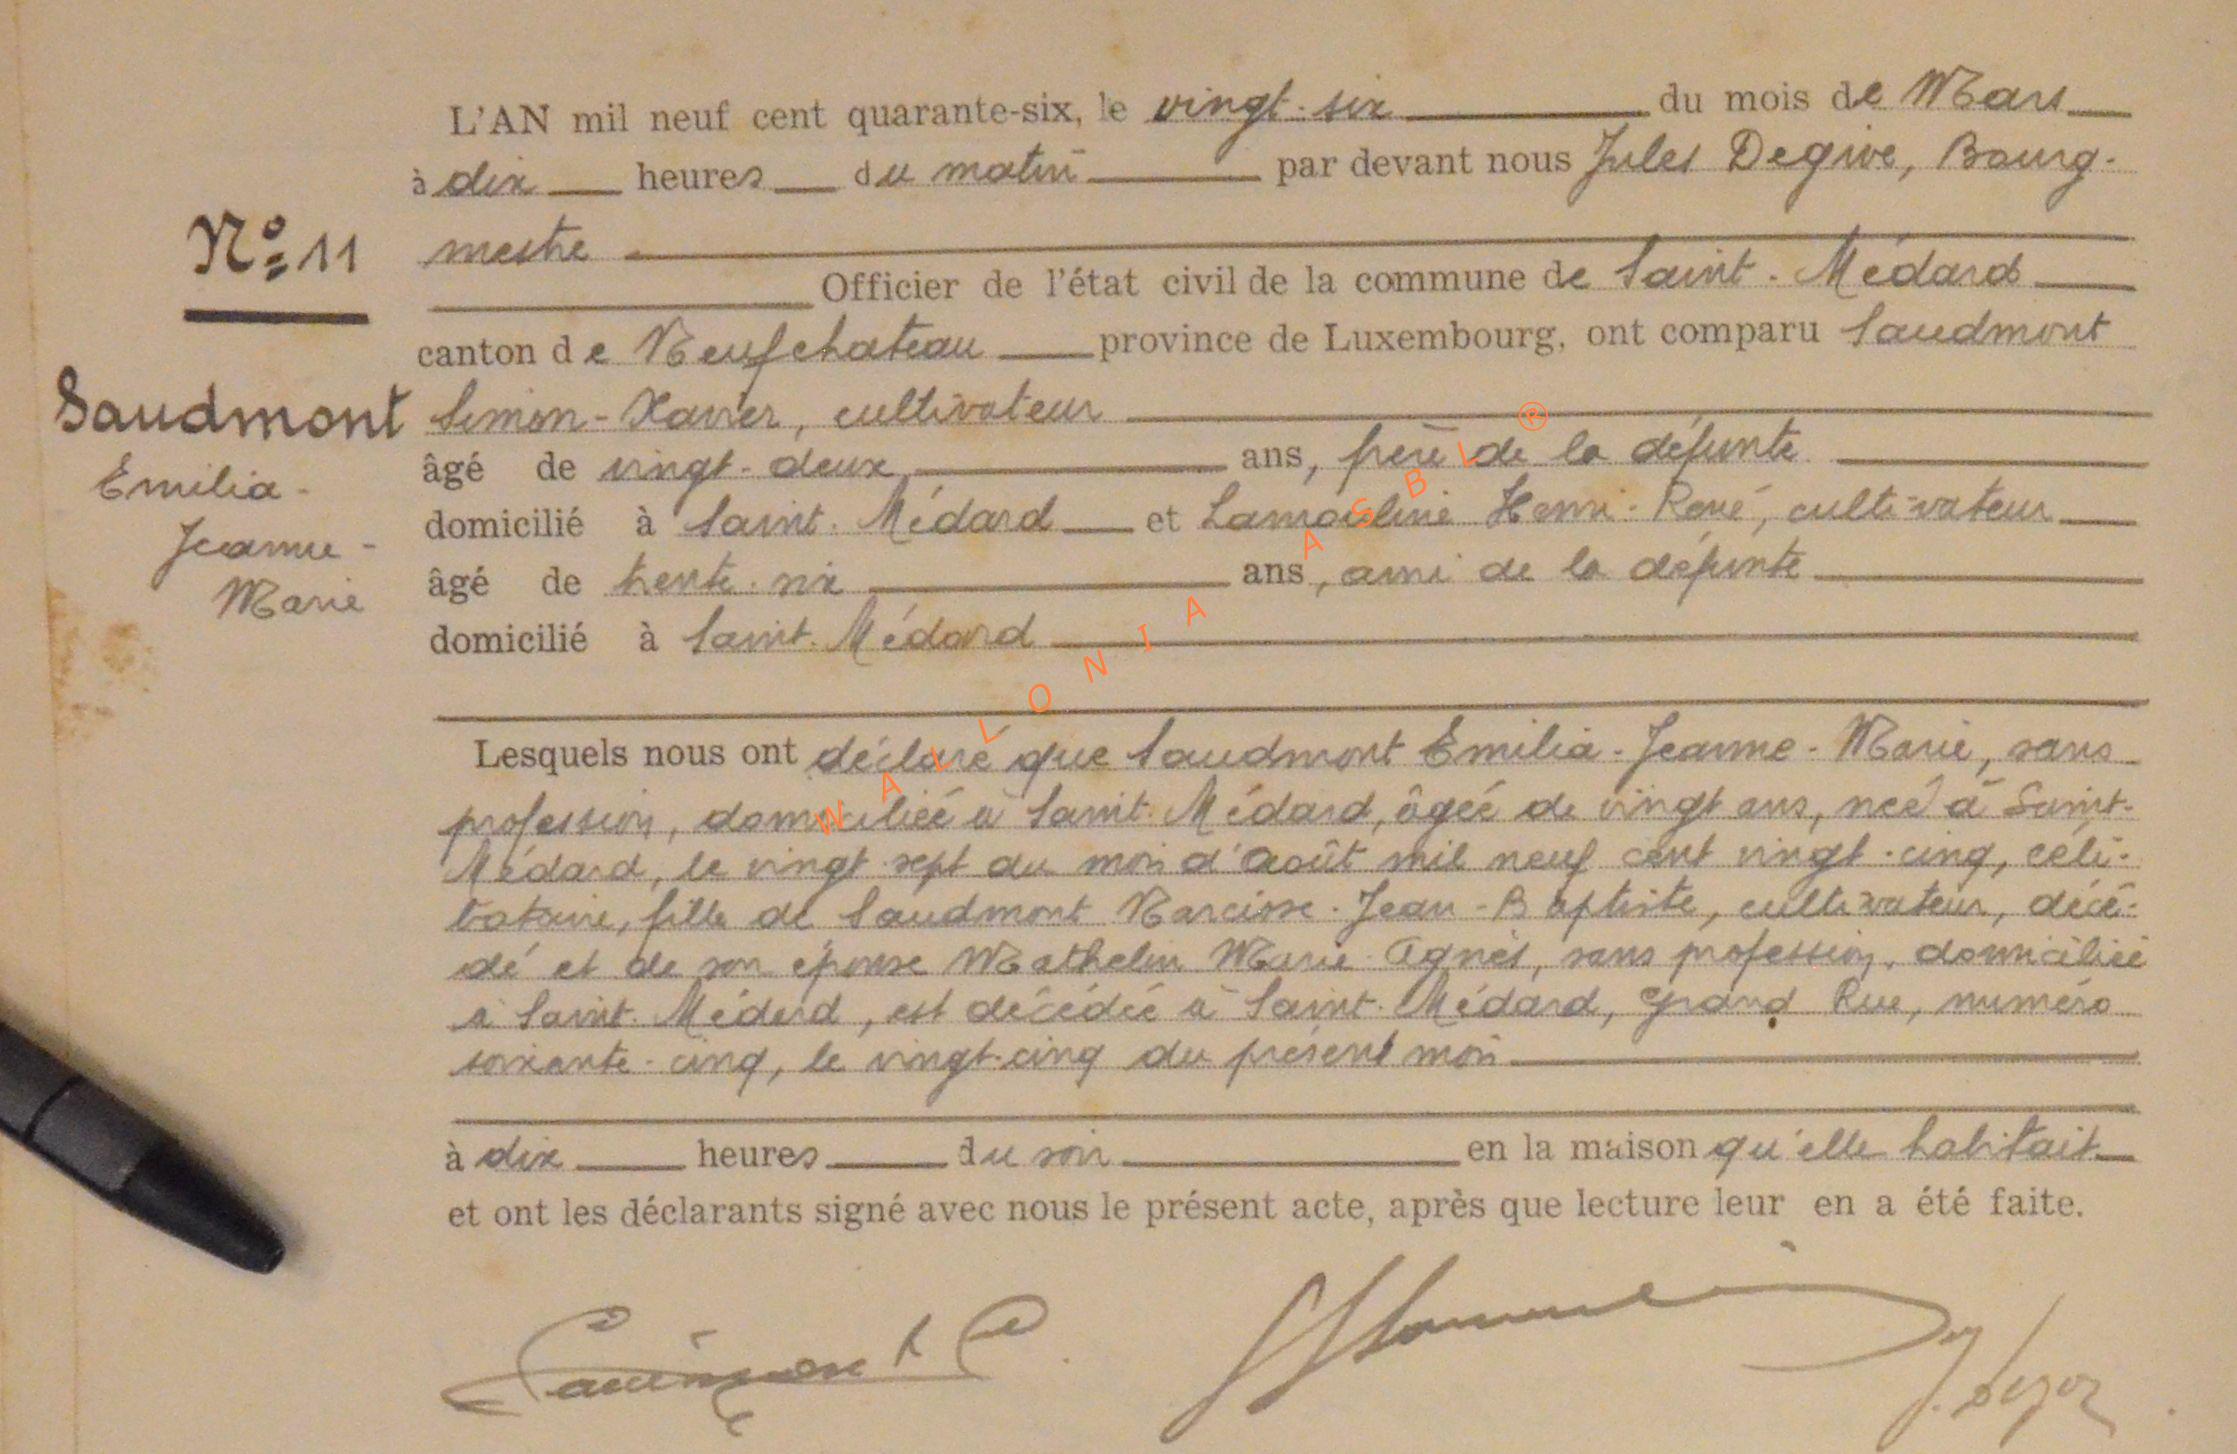 L'AN mil neuf cent quarante-six, le vingt-six du mois de Mars
à dix heures du matin par devant nous Jules Degive, Bourg-
mestre
Nº 11
Officier de l'état civil de la commune de Saint-Médard
canton de Neufchateau province de Luxembourg, ont comparu Saudmont
Saudmont
Emilia-
Jeanne-
Marie
Simon-Xavier, cultivateur
âgé de vingt-deux ans, frère de la défunte
domicilié à Saint-Médard et Lamouline Henri-René, cultivateur
âgé de trente-six ans, ami de la défunte
domicilié à Saint-Médard
Lesquels nous ont déclaré que Saudmont Emilia-Jeanne-Marie, sans
profession, domiciliée à Saint-Médard, âgée de vingt ans, née à Saint-
Médard, le vingt sept du mois d'août mil neuf cent vingt-cinq, céli-
bataire, fille de Saudmont Narcisse-Jean-Baptiste, cultivateur, décé-
dé et de son épouse Mathelin Marie-Agnès, sans profession, domiciliée
à Saint-Médard, est décédée à Saint-Médard, Grand Rue, numéro
soixante-cinq, le vingt-cinq du présent mois
à dix heures du soir en la maison qu'elle habitait
et ont les déclarants signé avec nous le présent acte, après que lecture leur en a été faite.
WALLONIA ASBL ®